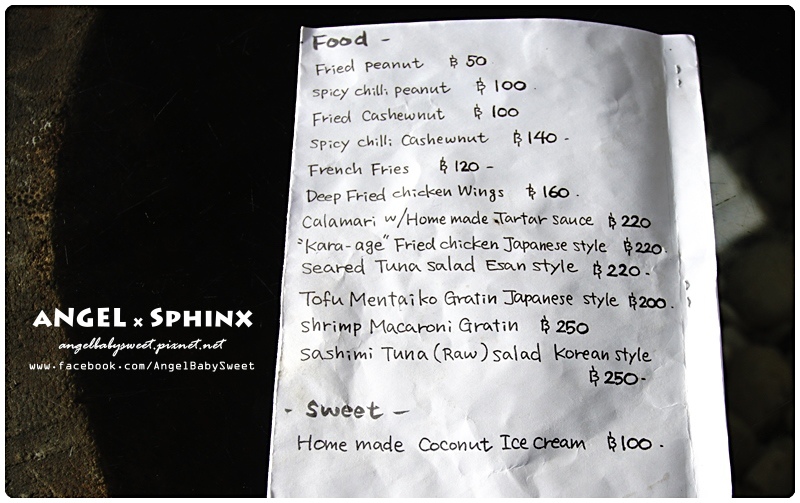 Food -
Fried peanut ฿ 50
spicy chilli peanut ฿ 100.
Fried Cashewnut ฿ 100
spicy chilli Cashewnut ฿ 140 -
French Fries ฿ 120 -
Deep Fried chicken Wings ฿ 160.
Calamari w/Home made Tartar sauce ฿ 220
"Kara-age" Fried chicken Japanese style ฿ 220.
Seared Tuna salad Esan style ฿ 220.-
Tofu Mentaiko Gratin Japanese style ฿200.
shrimp Macaroni Gratin ฿ 250
Sashimi Tuna (Raw) salad Korean style
฿ 250-
- Sweet -
Home made Coconut Ice cream ฿100.
ANGEL x SPHINX
angelbabysweet.pixnet.net
www.facebook.com/AngelBabySweet